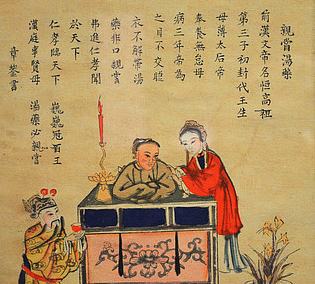 親嘗湯藥
前漢文帝名恒高祖
第三子初封代王生
母薄太后帝
奉養無怠母
病三年帝為
之目不交睫
衣不解帶湯
藥非口親嘗
弗進仁孝聞
於天下
仁孝臨天下
巍巍冠百王
漢庭事賢母
湯藥必親嘗